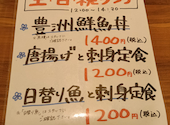 12:00～14:20
豊洲鮮魚丼
1400円(税込)
唐揚げと刺身定食
1200円(税込)
日替り魚と刺身定食
1200円(税込)